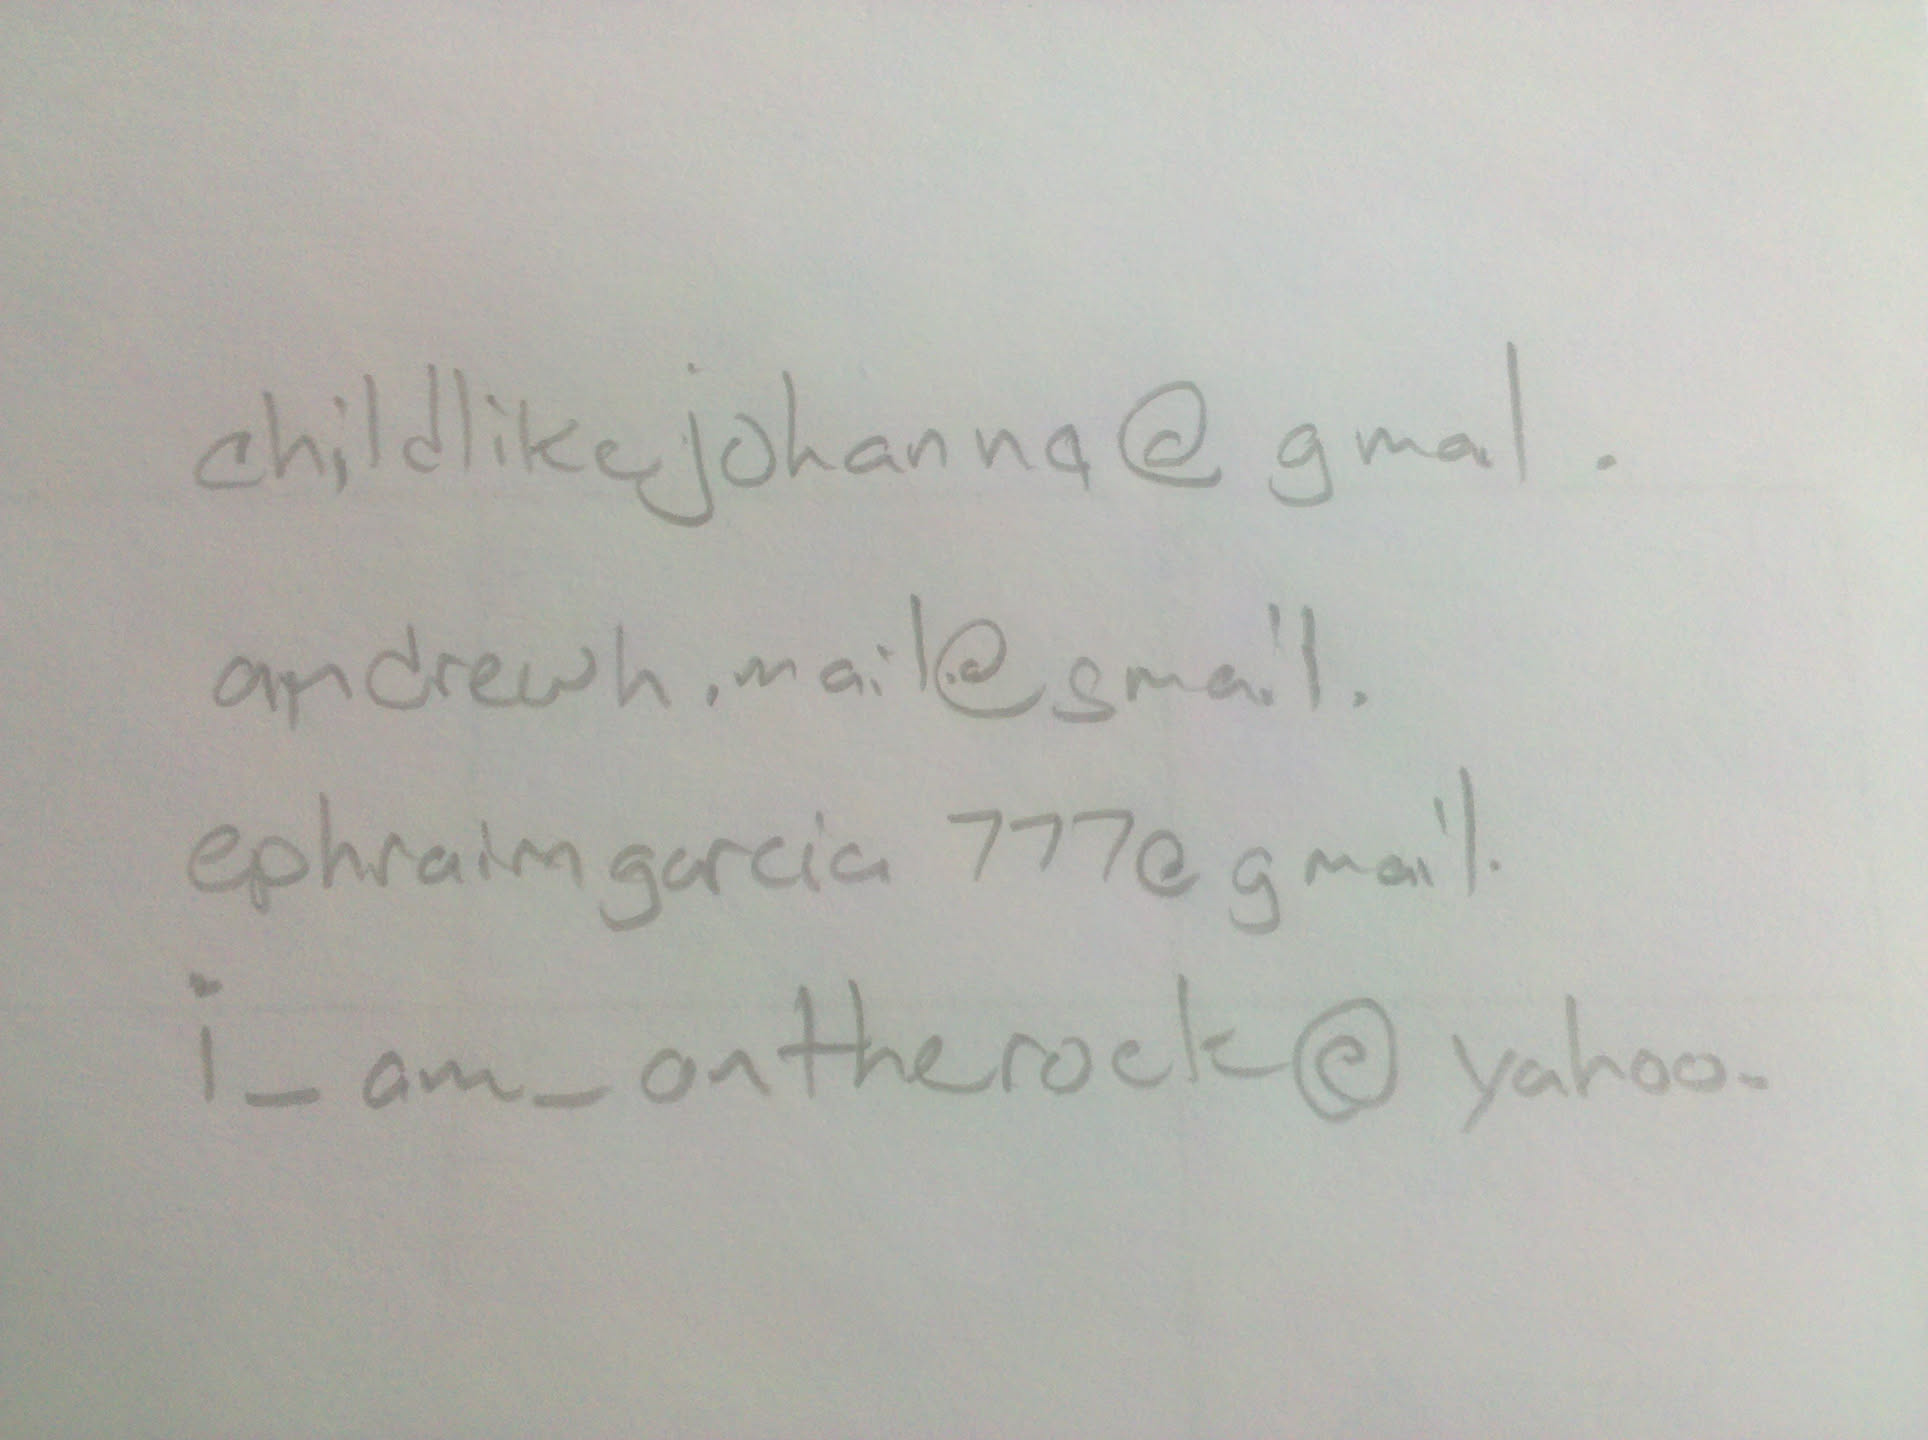 childlikejohanna@gmal.
andrewh.mail@gmail.
ephraimgarcia777@gmail.
i_am_ontherock@yahoo.